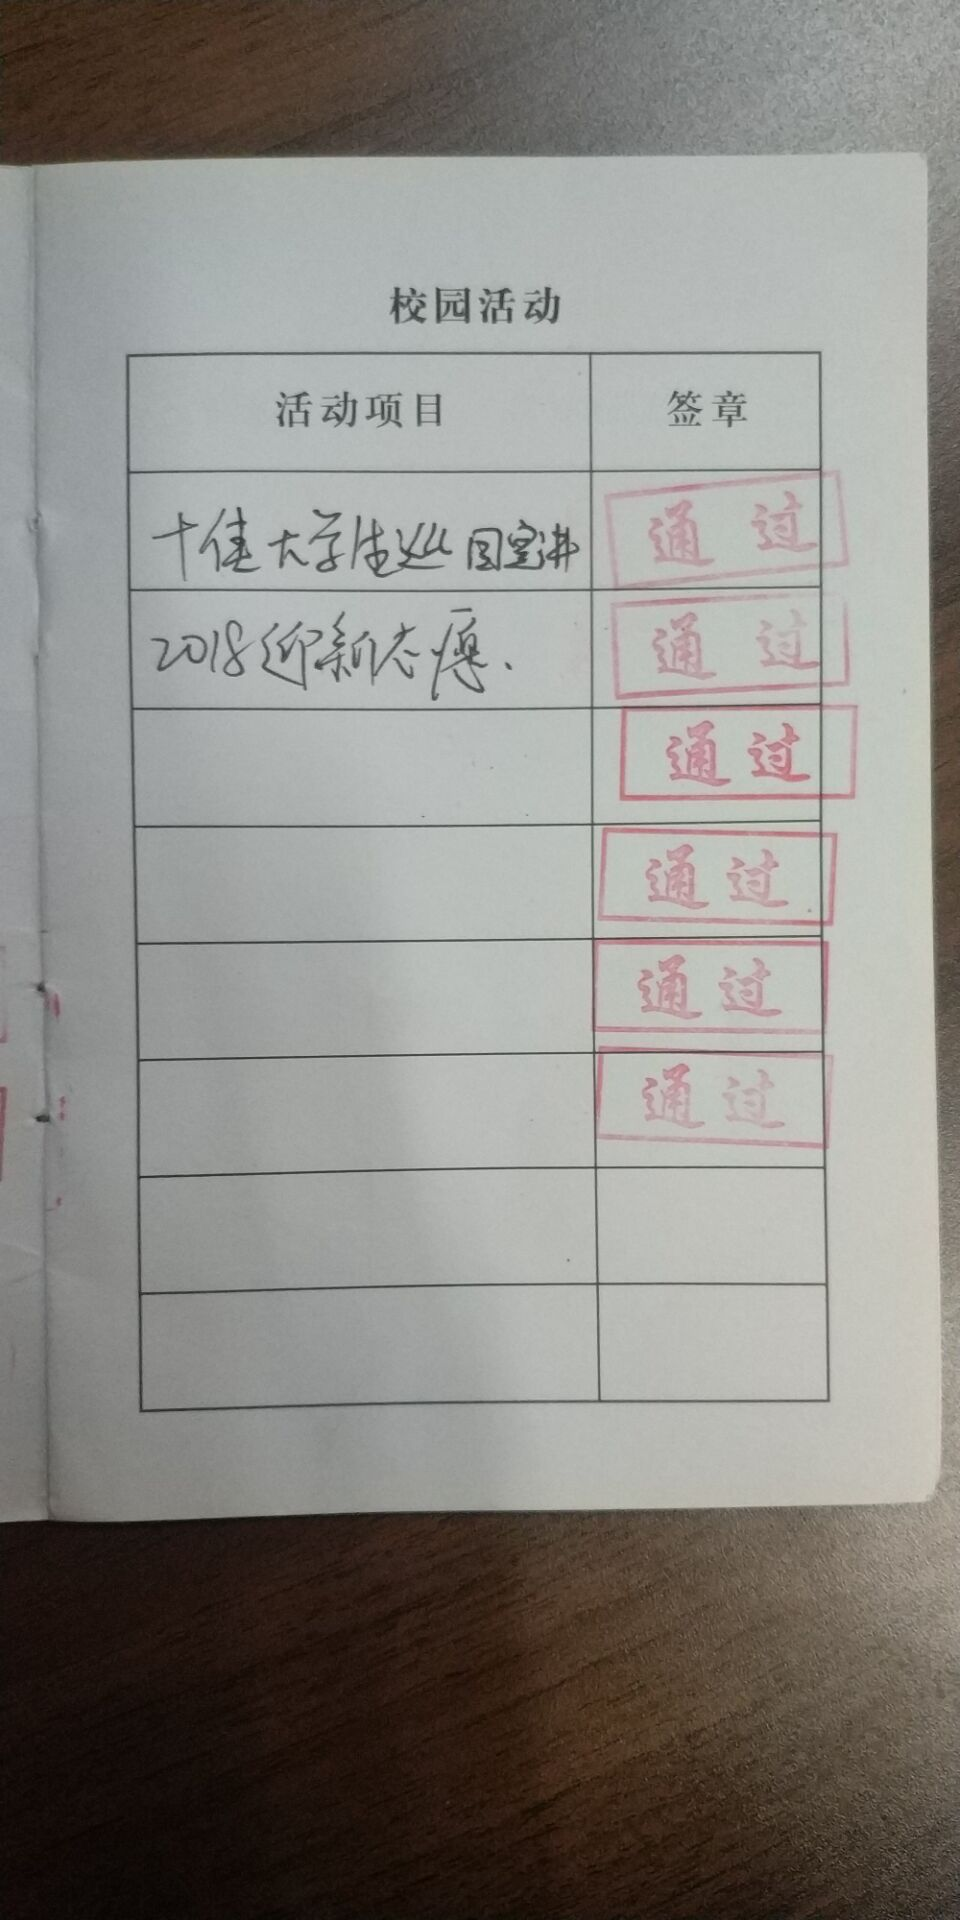 校园活动
活动项目 签章
十佳大学生巡回宣讲 通过
2018迎新志愿. 通过
通过
通过
通过
通过